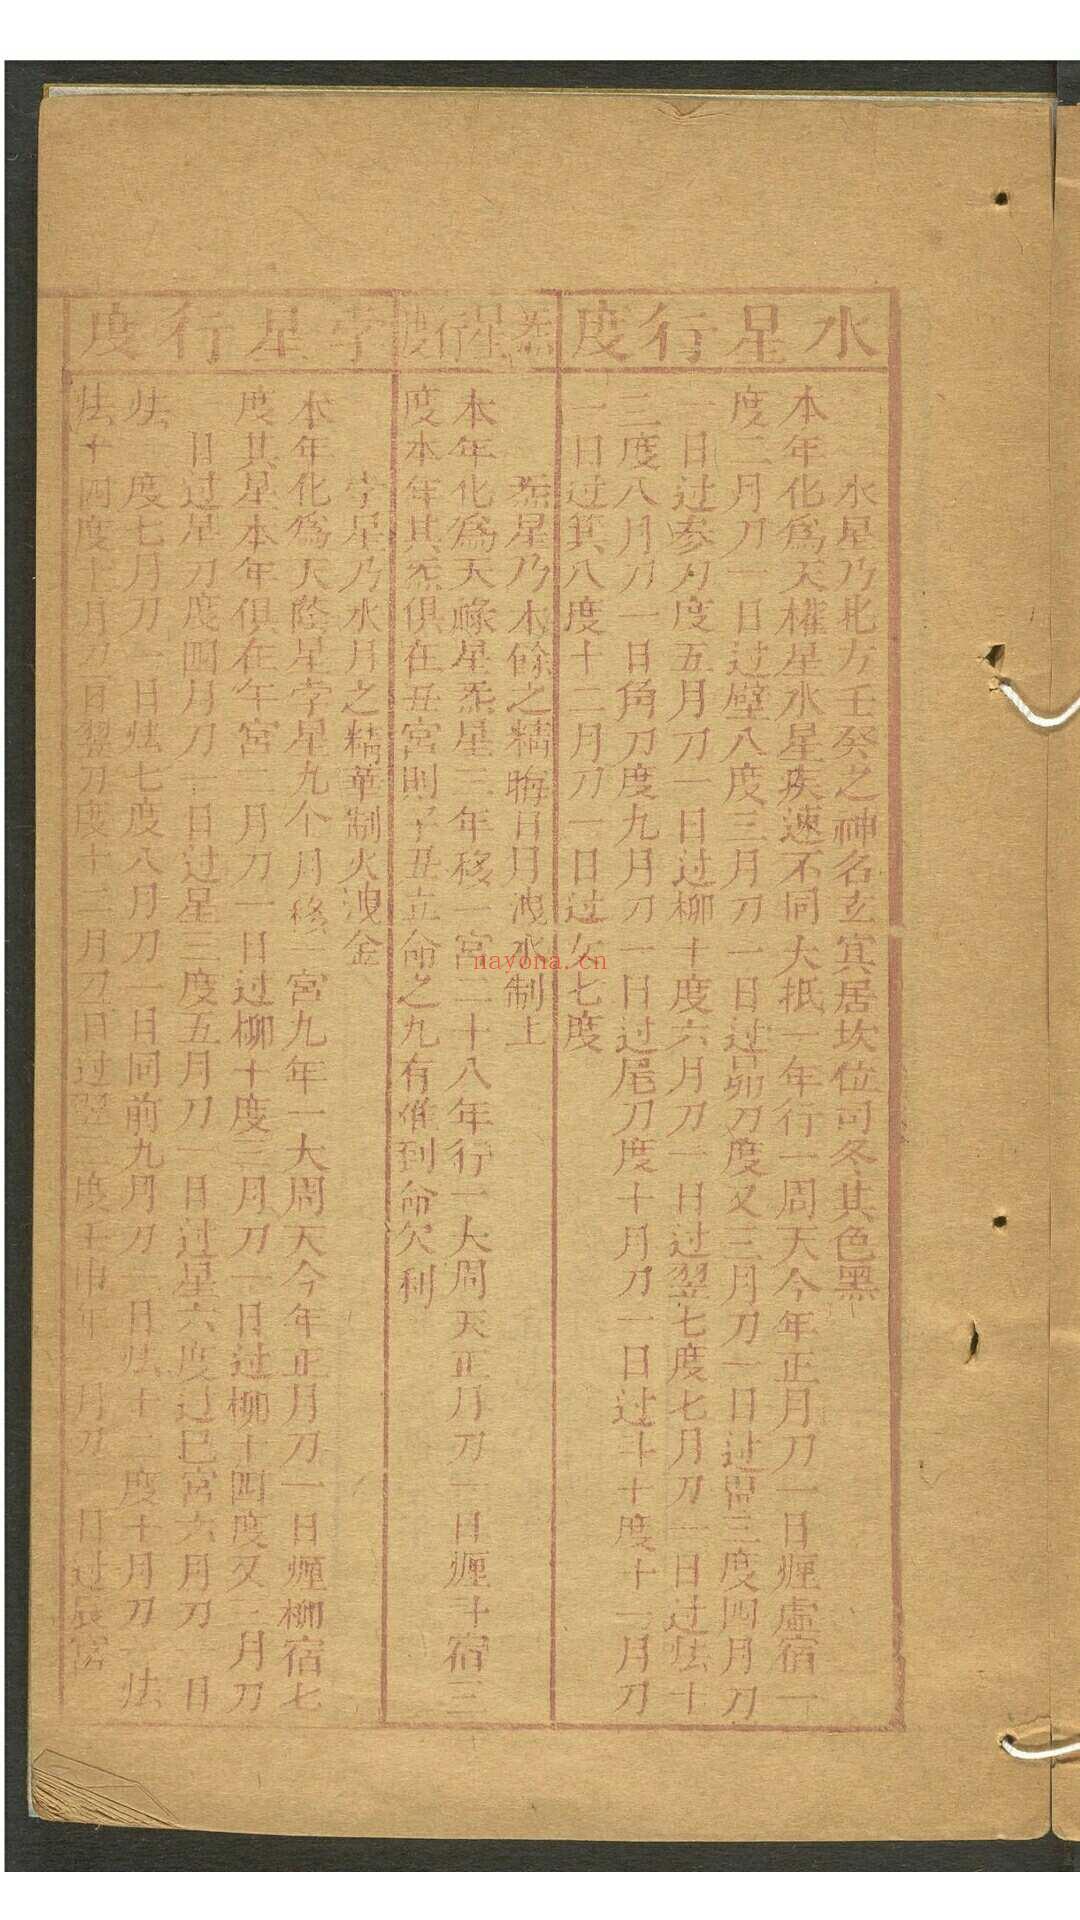 水星行度
水星乃北方壬癸之神名玄宾居坎位司冬其色黑
本年化為天權星水星疾速不同大抵一年行一周天今年正月刀一日煙虛宿一
度二月刀一日过壁八度三月刀一日过昴刀度又三月刀一日过胃三度四月刀
一日过参刀度五月刀一日过柳十度六月刀一日过翌七度七月刀一日过㤼十
三度八月刀一日角刀度九月刀一日过尾刀度十月刀一日过斗十度十一月刀
一日过箕八度十二月刀一日过女七度
炁星行度
炁星乃木餘之精晦日月洩水制土
本年化為天祿星炁星三年移一宮二十八年行一大周天正月刀一日煙斗宿三
度本年其炁俱在丑宮則子丑立命之九有催到命欠利
孛星行度
孛星乃水月之精華制火洩金
本年化為天蔭星孛星九个月移一宮九年一大周天今年正月刀一日煙柳宿七
度其星本年俱在午宮二月刀一日过柳十度三月刀一日过柳十四度又三月刀
一日过星刀度四月刀一日过星三度五月刀一日过星六度过巳宮六月刀一日
㤼一度七月刀一日㤼七度八月刀一日同前九月刀一日㤼十二度十月刀一㤼
㤼十四度十一月刀一日翌刀度十二月刀一日过翌三度壬申年 月刀一日过辰宮
nayona.cn